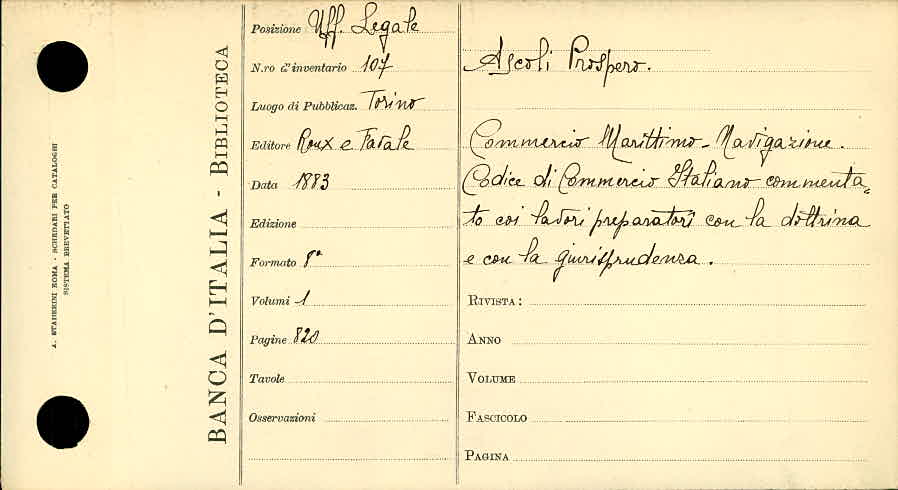 A. STADERINI ROMA - SCHEDARI PER CATALOGHI
SISTEMA BREVETTATO
BANCA D'ITALIA - BIBLIOTECA
Posizione Uff. Legale
N.ro d'inventario 107
Luogo di Pubblicaz. Torino
Editore Roux e Favale
Data 1883
Edizione
Formato 8°
Volumi 1
Pagine 820
Tavole
Osservazioni
Ascoli Prospero.
Commercio Marittimo - Navigazione.
Codice di Commercio Italiano commenta=
to coi lavori preparatori con la dottrina
e con la giurisprudenza.
RIVISTA:
ANNO
VOLUME
FASCICOLO
PAGINA